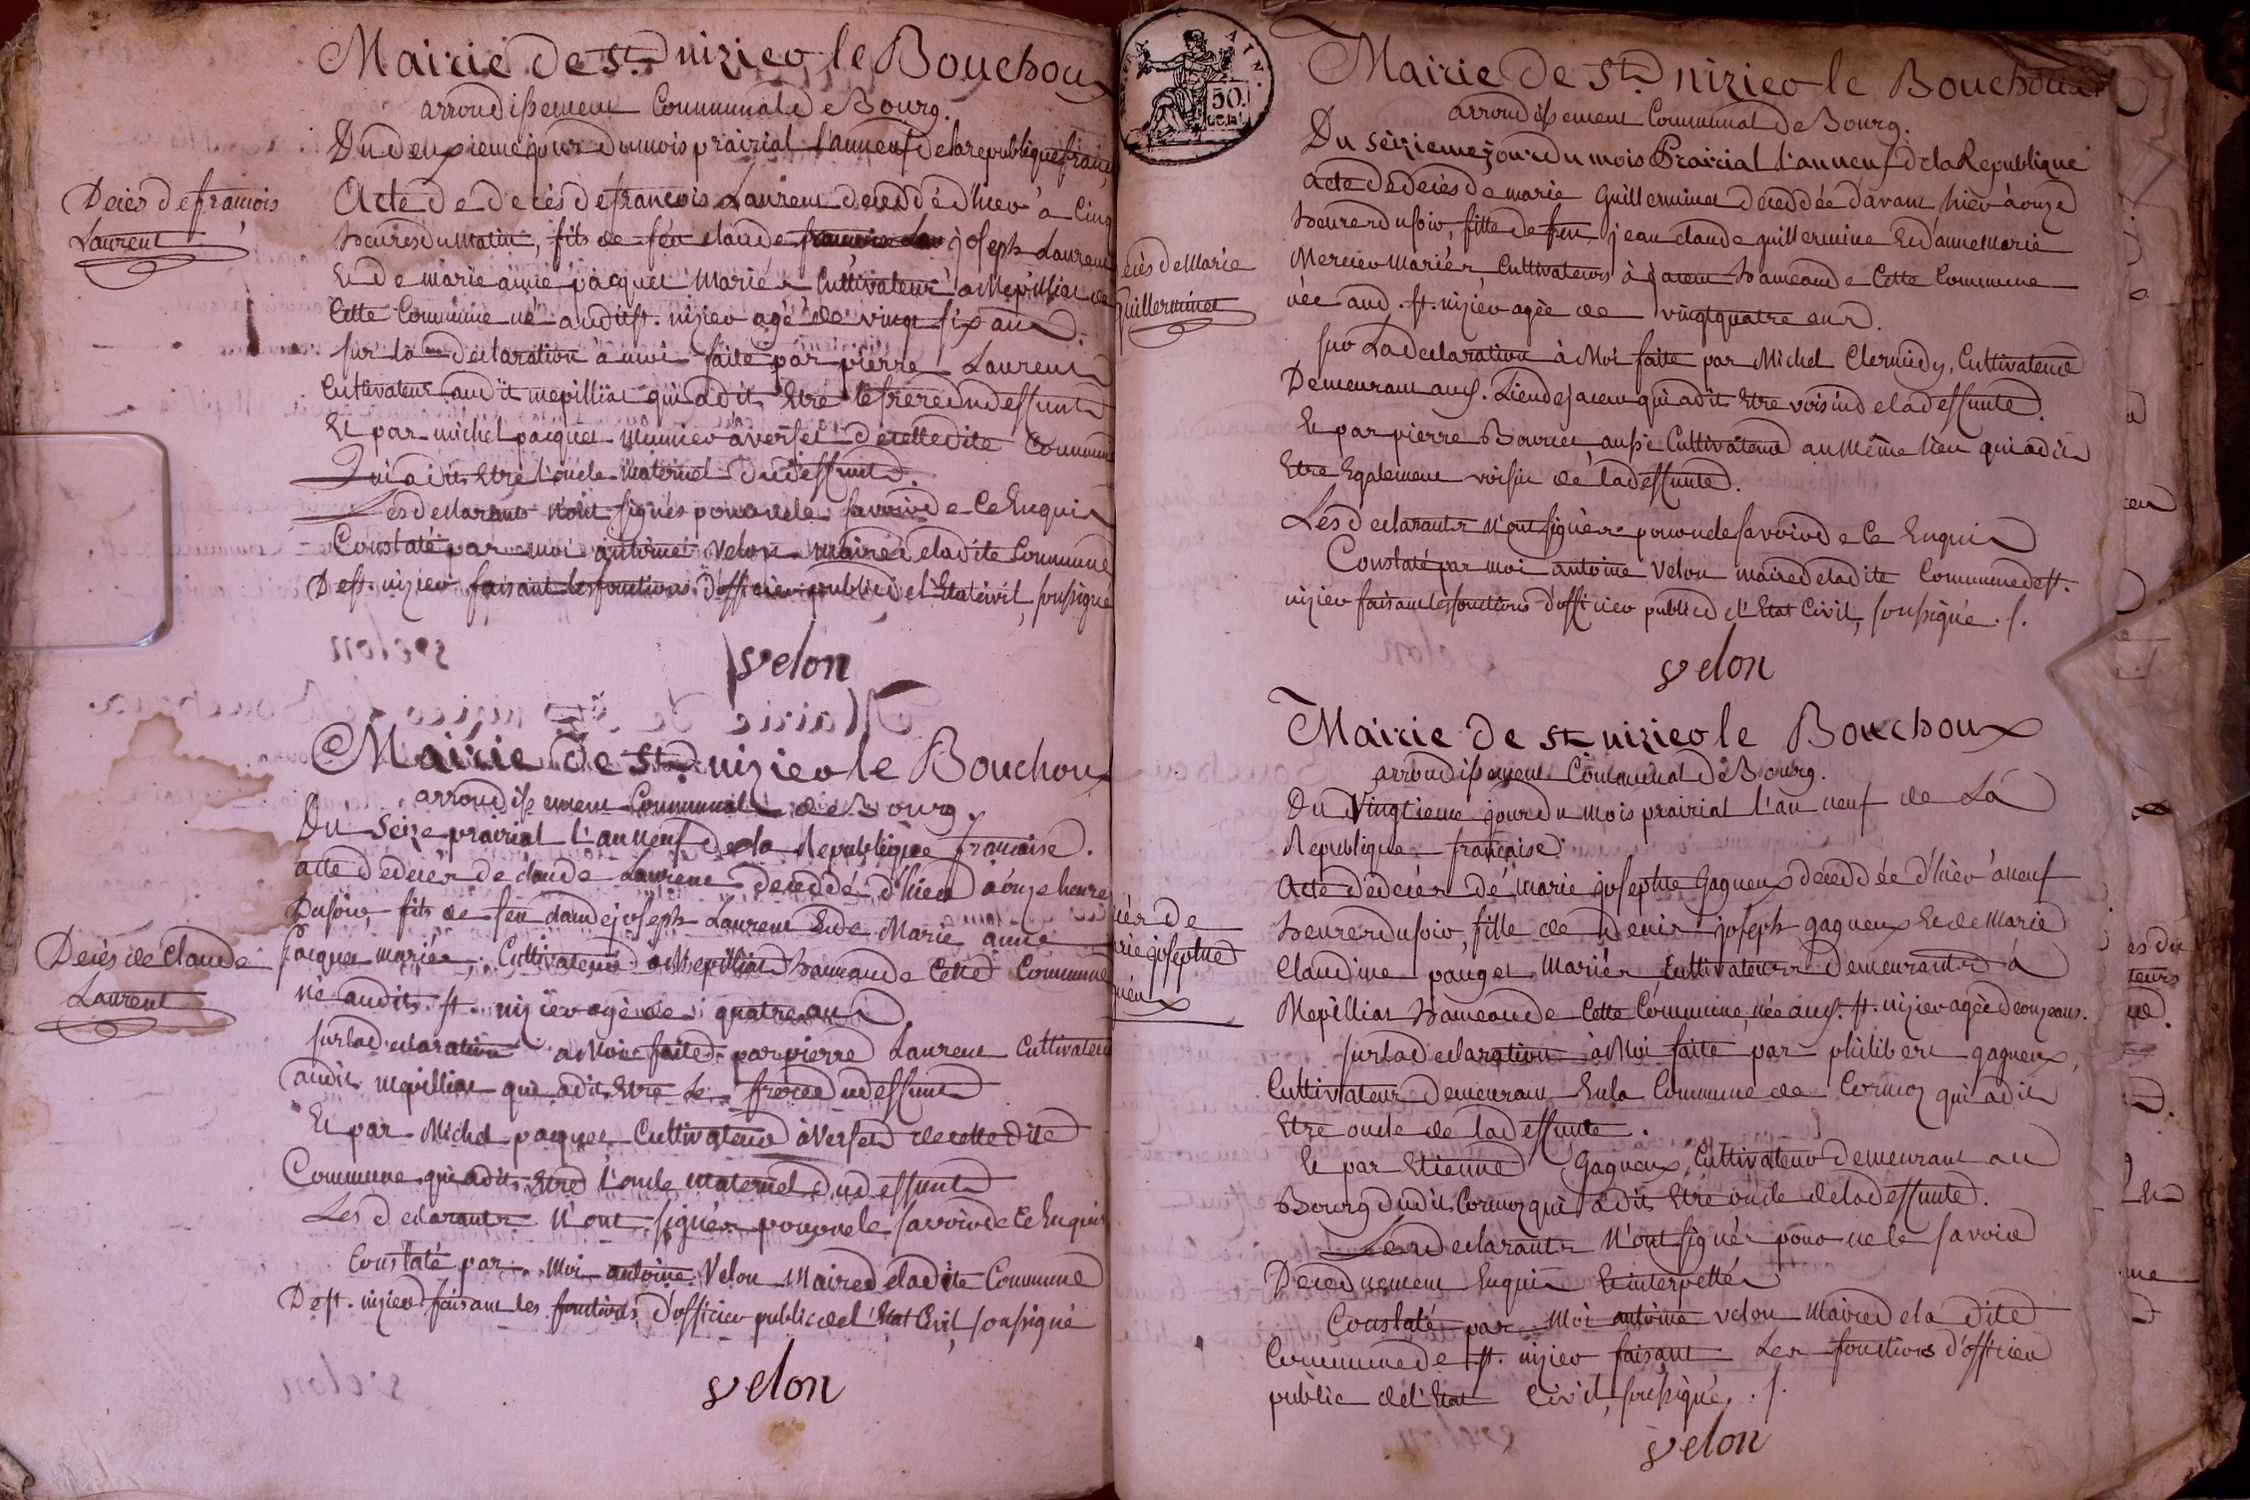 Mairie de St. nizier le Bouchoux
arrondissement Communal de Bourg.
Du deuxieme jour du mois prairial l'an neuf de la republique franç
Decès de francois
Laurent
Acte de decès de francois Laurent decedé d'hier à Cinq
heures du matin, fils de feu claude joseph Laurent
Et de marie anne pacquet Mariés Cultivateurs a Mepilliat de
Cette Commune né audit st. nizier agé de vingt six ans.
sur la declaration a moi faite par pierre Laurent
Cultivateur audit mepilliat qui a dit Etre le frere du deffunt
Et par michel pacquet Munier à versel de cette dite Commune
Qui a dit Etre l'oncle maternel du deffunt.
Les declarants n'ont signés pour ne le savoir de Ce Enquis
Constaté par moi antoine Velon maire de la dite Commune
De st. nizier faisant les fonctions d'officier public de l'Etat civil, soussigné
Velon
Mairie de St. nizier le Bouchoux
arrondissement Communal de Bourg.
Du Seize prairial l'an neuf de la Republique francaise.
acte de decès de claude Laurent decedé d'hier à onze heures
Du soir, fils de feu claude joseph Laurent Et de Marie anne
Decès de Claude
Laurent
pacquet mariés, Cultivateurs à Mepilliat hameau de Cette Commune
né audit st. nizier agé de quatre ans
sur la declaration a Moi faite par pierre Laurent Cultivateur
audit mepilliat qui a dit Etre le frere du deffunt
Et par Michel pacquet Cultivateur à Versel de cette dite
Commune qui a dit Etre l'oncle maternel du deffunt
Les declarants N'ont signés pour ne le savoir de Ce Enquis
Constaté par Moi antoine Velon Maire de la dite Commune
De st. nizier faisant les fonctions d'officier public de l'Etat Civil, soussigné
Velon
50.
Mairie de St. nizier le Bouchoux
arrondissement Communal de Bourg.
Du seizieme jour du mois Prairial l'an neuf de la Republique
acte de decès de marie Guillerminet decedée d'avant hier à onze
heures du soir, fille de feu jean claude guillermine Et d'anne marie
ecès de Marie
Guillerminet
Mercier mariés Cultivateurs à hameau de Cette Commune
née aud. st. nizier agée de vingt quatre ans.
sur La declaration à Moi faite par Michel Clermidy, Cultivateur
Demeurant aus. Lieu de qui a dit Etre voisin de la deffunte.
Et par pierre Bourcet aussi Cultivateur au Même lieu qui a dit
Etre Egalement voisin de la deffunte.
Les declarants N'ont signés pour ne le savoir de Ce Enquis
Constaté par moi antoine Velon maire de la dite Commune de st.
nizier faisant les fonctions d'officier public de l'Etat Civil, soussigné. /.
Velon
Mairie de St. nizier le Bouchoux
arrondissement Communal de Bourg.
Du Vingtieme jour du Mois prairial l'an neuf de La
Republique française.
Acte de decès de marie josephte Gagneux decedée d'hier à neuf
heures du soir, fille de denis joseph gagneux Et de Marie
ès de
rie josephte
neux
Claudine pauget Mariés, Cultivateurs Demeurants à
Mepilliat hameau de Cette Commune, née aus. st. nizier agée de onze ans.
sur la declaration à Moi faite par philibert gagneux,
Cultivateur Demeurant En la Commune de Cormoz qui a dit
Etre oncle de la deffunte.
Et par Etienne Gagneux, Cultivateur Demeurant au
Bourg dudit Cormoz qui a dit Etre oncle de la deffunte.
Les declarants N'ont signés pour ne le savoir
De ce duement Enquis Et interpellés
Constaté par Moi antoine velon Maire de la dite
Commune de st. nizier faisant Les fonctions d'officier
public de l'Etat Civil, soussigné. /.
Velon